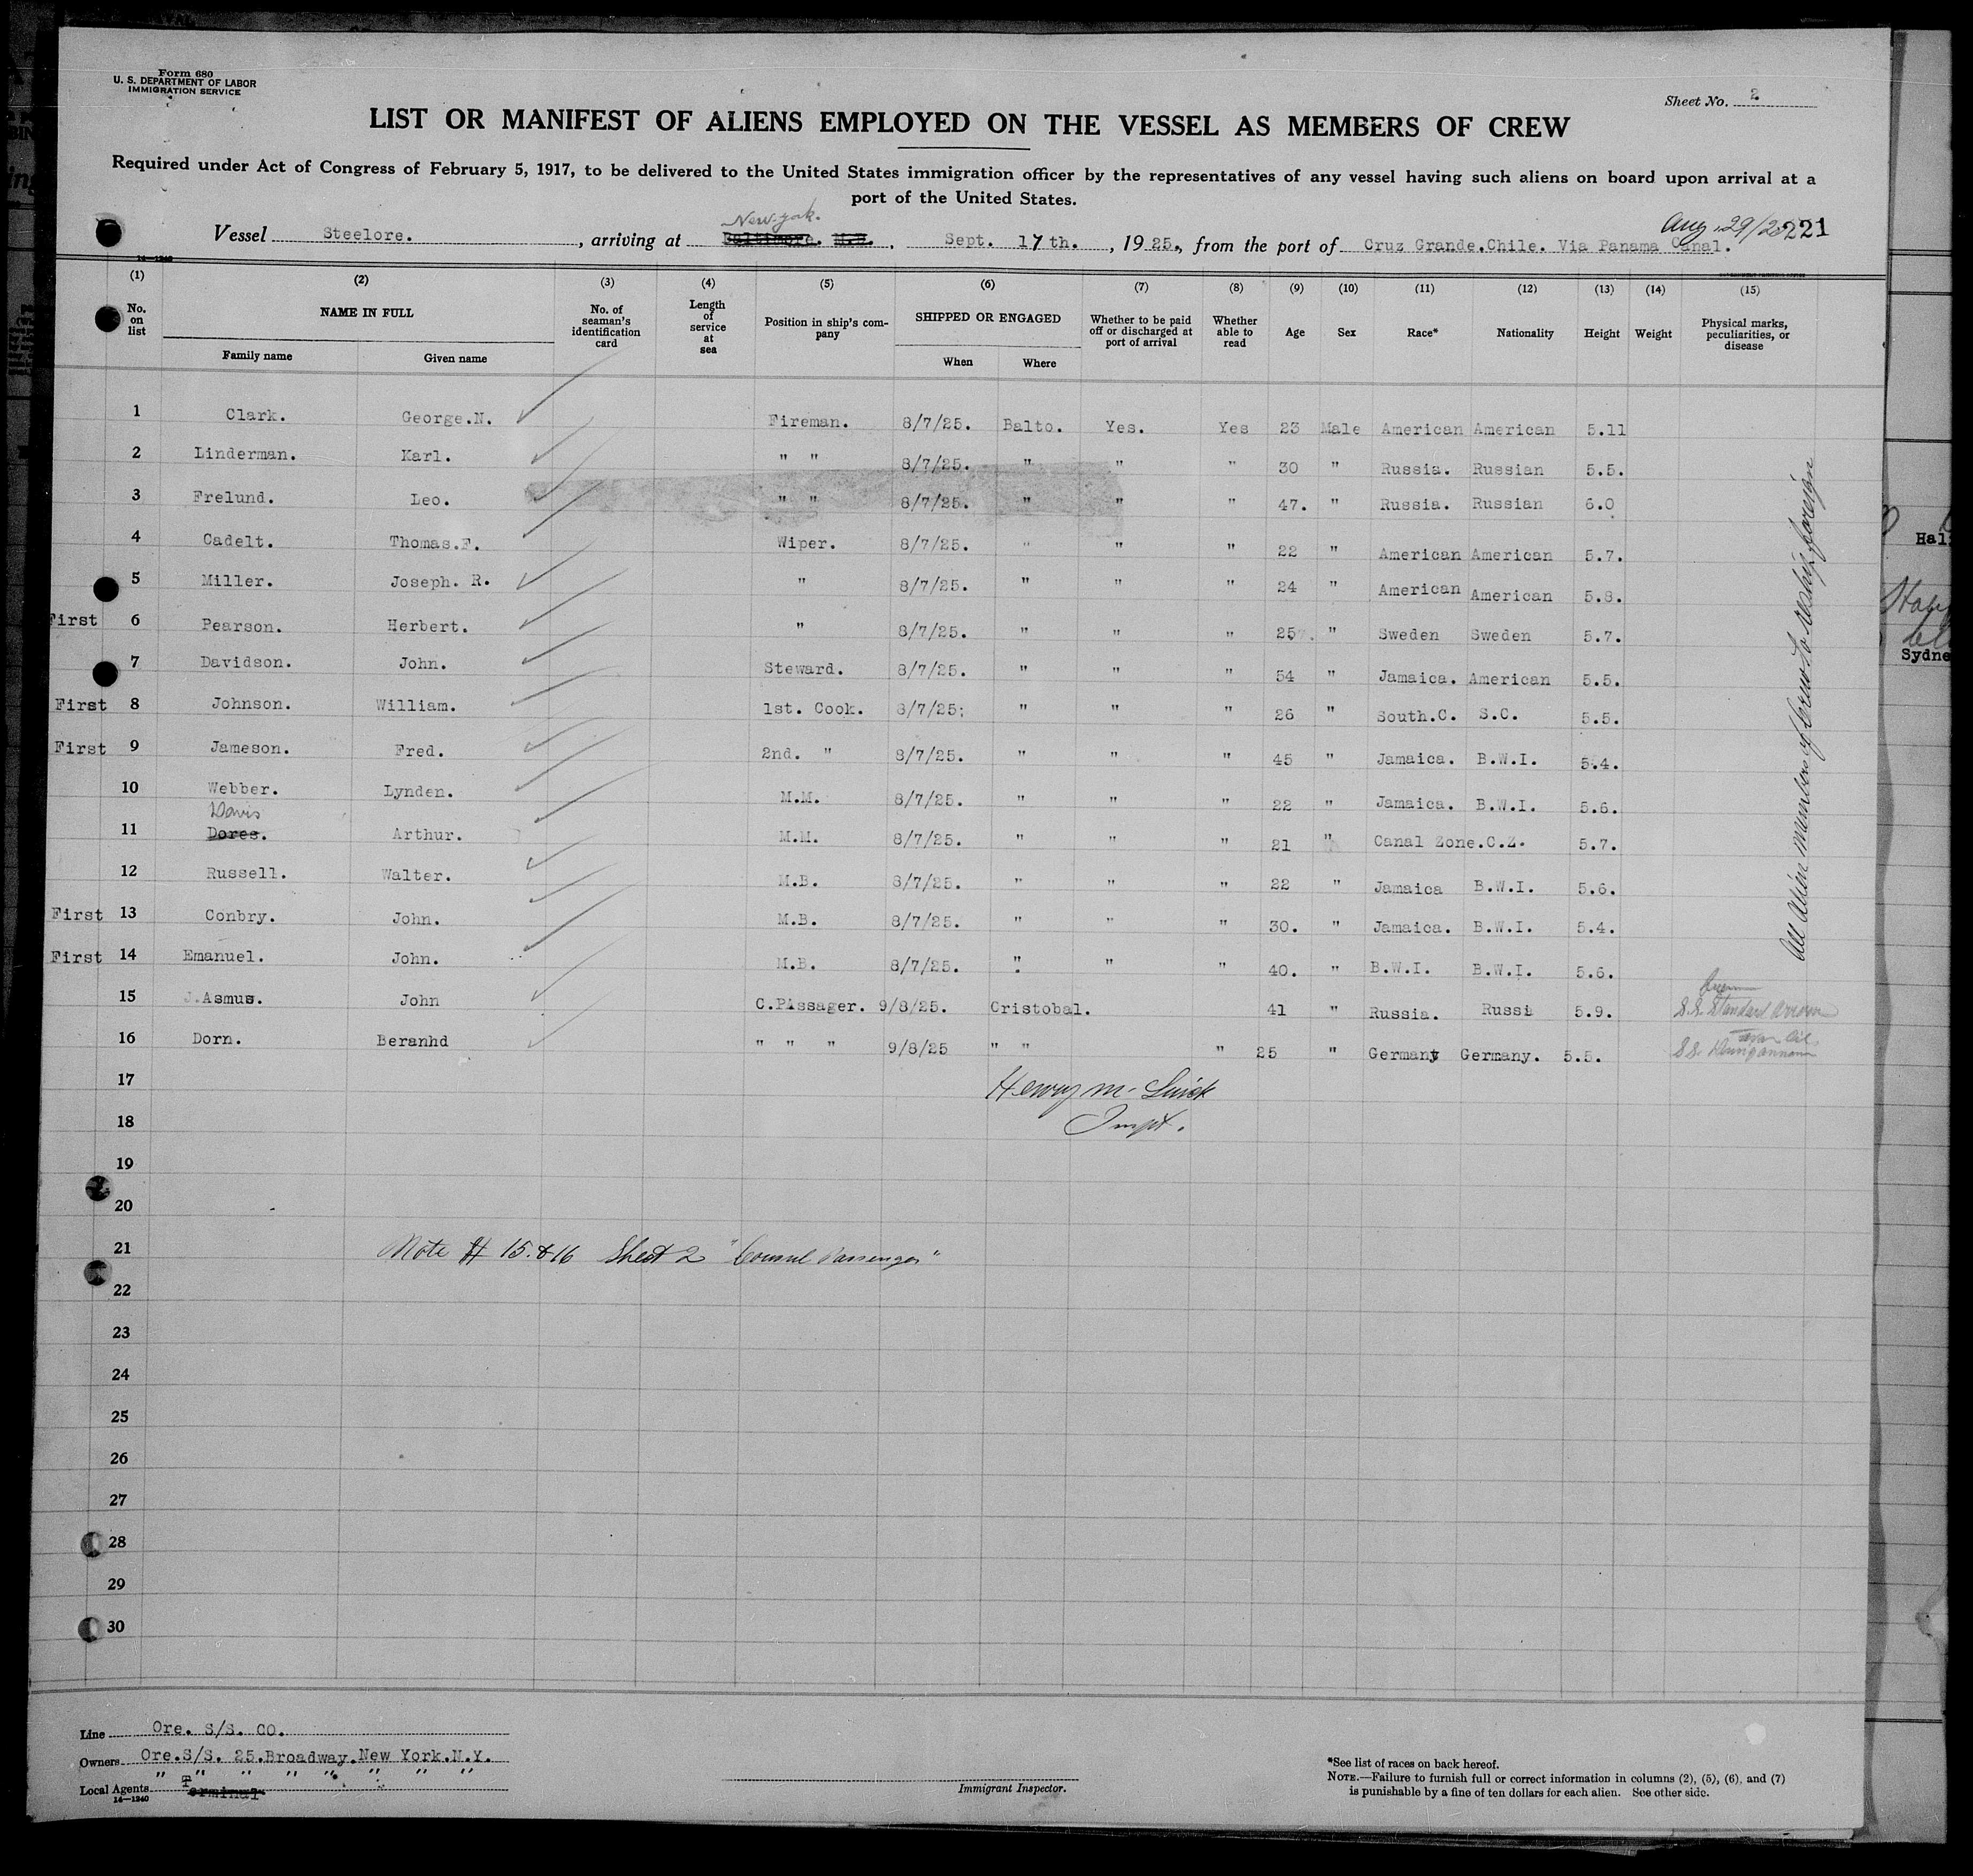 Form 680
U. S. DEPARTMENT OF LABOR
IMMIGRATION SERVICE
Sheet No. 2
LIST OR MANIFEST OF ALIENS EMPLOYED ON THE VESSEL AS MEMBERS OF CREW
Required under Act of Congress of February 5, 1917, to be delivered to the United States immigration officer by the representatives of any vessel having such aliens on board upon arrival at a
port of the United States.
New york.
Aug. 29/25 221
Vessel Steelore. , arriving at Baltimore. M.D. , Sept. 17th. , 1925., from the port of Cruz Grande.Chile. Via Panama Canal.
14—1240
(1) (2) (3) (4) (5) (6) (7) (8) (9) (10) (11) (12) (13) (14) (15)
No. on list NAME IN FULL No. of seaman's identification card Length of service at sea Position in ship's company SHIPPED OR ENGAGED Whether to be paid off or discharged at port of arrival Whether able to read Age Sex Race* Nationality Height Weight Physical marks, peculiarities, or disease
Family name Given name When Where
1 Clark. George.N. Fireman. 8/7/25. Balto. Yes. Yes 23 Male American American 5.11
2 Linderman. Karl. " " 8/7/25. " " " 30 " Russia. Russian 5.5.
3 Frelund. Leo. " " 8/7/25. " " " 47. " Russia. Russian 6.0
4 Cadelt. Thomas.F. Wiper. 8/7/25. " " " 22 " American American 5.7.
5 Miller. Joseph. R. " 8/7/25. " " " 24 " American American 5.8.
First 6 Pearson. Herbert. " 8/7/25. " " " 25 . " Sweden Sweden 5.7.
7 Davidson. John. Steward. 8/7/25. " " " 54 " Jamaica. American 5.5.
First 8 Johnson. William. 1st. Cook. 8/7/25; " " " 26 " South.C. S.C. 5.5.
First 9 Jameson. Fred. 2nd. " 8/7/25. " " " 45 " Jamaica. B.W.I. 5.4.
10 Webber. Lynden. M.M. 8/7/25. " " " 22 " Jamaica. B.W.I. 5.6.
Davis
11 Dores. Arthur. M.M. 8/7/25. " " " 21 " Canal Zone.C.Z. 5.7.
12 Russell. Walter. M.B. 8/7/25. " " " 22 " Jamaica B.W.I. 5.6.
First 13 Conbry. John. M.B. 8/7/25. " " " 30. " Jamaica. B.W.I. 5.4.
First 14 Emanuel. John. M.B. 8/7/25. " " " 40. " B.W.I. B.W.I. 5.6.
15 J.Asmus. John C.PAssager. 9/8/25. Cristobal. 41 " Russia. Russi 5.9. S.S. Standard Arrow
16 Dorn. Beranhd " " " 9/8/25 " " " 25 " Germany Germany. 5.5. S.S.
17
18
19
20
21
22
23
24
25
26
27
28
29
30
Henry M. Quick
Inspt.
Note # 15 & 16 Sheet 2 "Consul Passenger"
All Alien members of crew to reship foreign
Hali
Sydne
Line Ore. S/S. CO.
Owners Ore.S/S. 25.Broadway.New York.N.Y.
Local Agents " " " " " " " "
Terminal
14—1240
Immigrant Inspector.
*See list of races on back hereof.
NOTE.—Failure to furnish full or correct information in columns (2), (5), (6), and (7)
is punishable by a fine of ten dollars for each alien. See other side.